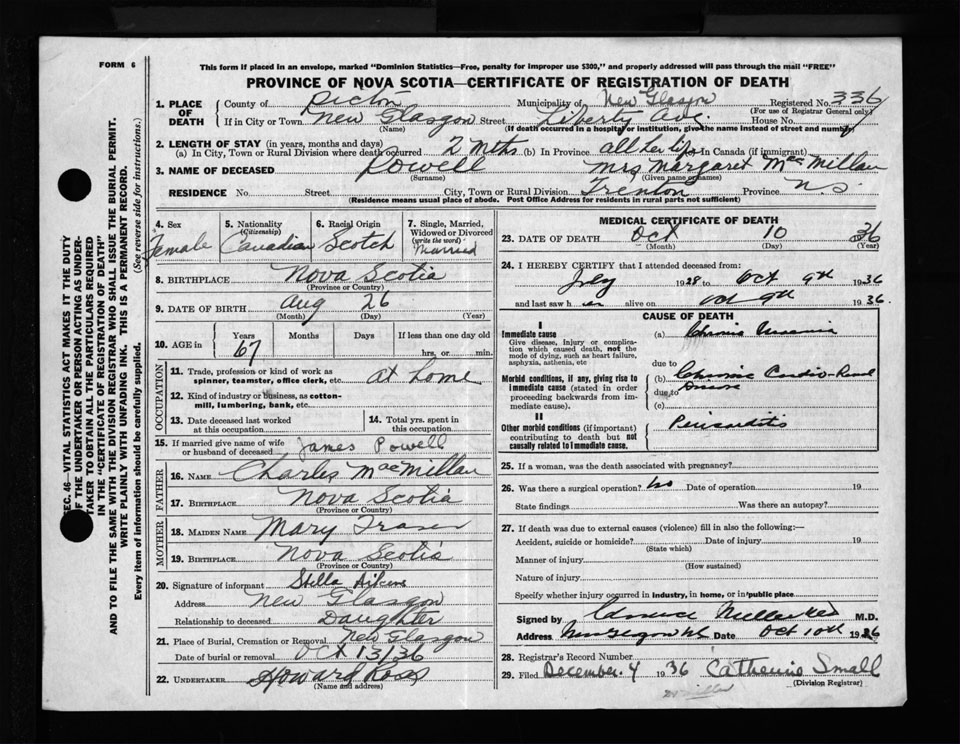 FORM 6
This form if placed in an envelope, marked "Dominion Statistics—Free, penalty for improper use $300," and properly addressed will pass through the mail "FREE"
PROVINCE OF NOVA SCOTIA—CERTIFICATE OF REGISTRATION OF DEATH
1. PLACE OF DEATH County of Pictou Municipality of New Glasgow Registered No. 336
(For use of Registrar General only)
If in City or Town New Glasgow Street Liberty Ave. House No.
(Name) (If death occurred in a hospital or institution, give the name instead of street and number)
2. LENGTH OF STAY (in years, months and days)
(a) In City, Town or Rural Division where death occurred 2 Mths. (b) In Province all her life (c) In Canada (if immigrant)
3. NAME OF DECEASED Powell Mrs Margaret MacMillan
(Surname) (Given name or names)
RESIDENCE No. Street City, Town or Rural Division Trenton Province N.S.
(Residence means usual place of abode. Post Office Address for residents in rural parts not sufficient)
4. Sex 5. Nationality (Citizenship) 6. Racial Origin 7. Single, Married, Widowed or Divorced (write the word)
Female Canadian Scotch Married
8. BIRTHPLACE Nova Scotia
(Province or Country)
9. DATE OF BIRTH Aug 26
(Month) (Day) (Year)
10. AGE in Years Months Days If less than one day old
67 hrs, or min.
OCCUPATION
11. Trade, profession or kind of work as spinner, teamster, office clerk, etc. at home
12. Kind of industry or business, as cotton-mill, lumbering, bank, etc.
13. Date deceased last worked at this occupation
14. Total yrs. spent in this occupation
15. If married give name of wife or husband of deceased James Powell
FATHER
16. NAME Charles MacMillan
17. BIRTHPLACE Nova Scotia
(Province or Country)
MOTHER
18. MAIDEN NAME Mary Fraser
19. BIRTHPLACE Nova Scotia
(Province or Country)
20. Signature of informant Stella Aikens
Address New Glasgow
Relationship to deceased Daughter
21. Place of Burial, Cremation or Removal New Glasgow
Date of burial or removal Oct 13/36
22. UNDERTAKER Howard Ross
(Name and address)
MEDICAL CERTIFICATE OF DEATH
23. DATE OF DEATH Oct 10 1936
(Month) (Day) (Year)
24. I HEREBY CERTIFY that I attended deceased from:
July 1928 to Oct 9th 1936
and last saw her alive on Oct 9th 1936.
CAUSE OF DEATH
I
Immediate cause
Give disease, injury or complication which caused death, not the mode of dying, such as heart failure, asphyxia, asthenia, etc
(a) Chronic Uraemia
due to
Morbid conditions, if any, giving rise to immediate cause (stated in order proceeding backwards from immediate cause).
(b) Chronic Cardio-Renal Disease
due to
(c)
II
Other morbid conditions (if important) contributing to death but not causally related to immediate cause.
Pericarditis
25. If a woman, was the death associated with pregnancy?
26. Was there a surgical operation? No Date of operation 19
State findings Was there an autopsy?
27. If death was due to external causes (violence) fill in also the following:—
Accident, suicide or homicide? Date of injury 19
(State which)
Manner of injury
(How sustained)
Nature of injury
Specify whether injury occurred in industry, in home, or in public place
Signed by Clarence Miller M.D.
Address New Glasgow N.S. Date Oct 10th 1936
28. Registrar's Record Number
29. Filed December 4 1936 Catherine Small
(Division Registrar)
Dr Miller
SEC. 46—VITAL STATISTICS ACT MAKES IT THE DUTY
OF THE UNDERTAKER OR PERSON ACTING AS UNDERTAKER TO OBTAIN ALL THE PARTICULARS REQUIRED
IN THE "CERTIFICATE OF REGISTRATION OF DEATH"
AND TO FILE THE SAME WITH THE DIVISION REGISTRAR WHO SHALL ISSUE THE BURIAL PERMIT.
WRITE PLAINLY WITH UNFADING INK. THIS IS A PERMANENT RECORD.
Every item of information should be carefully supplied. (See reverse side for instructions.)